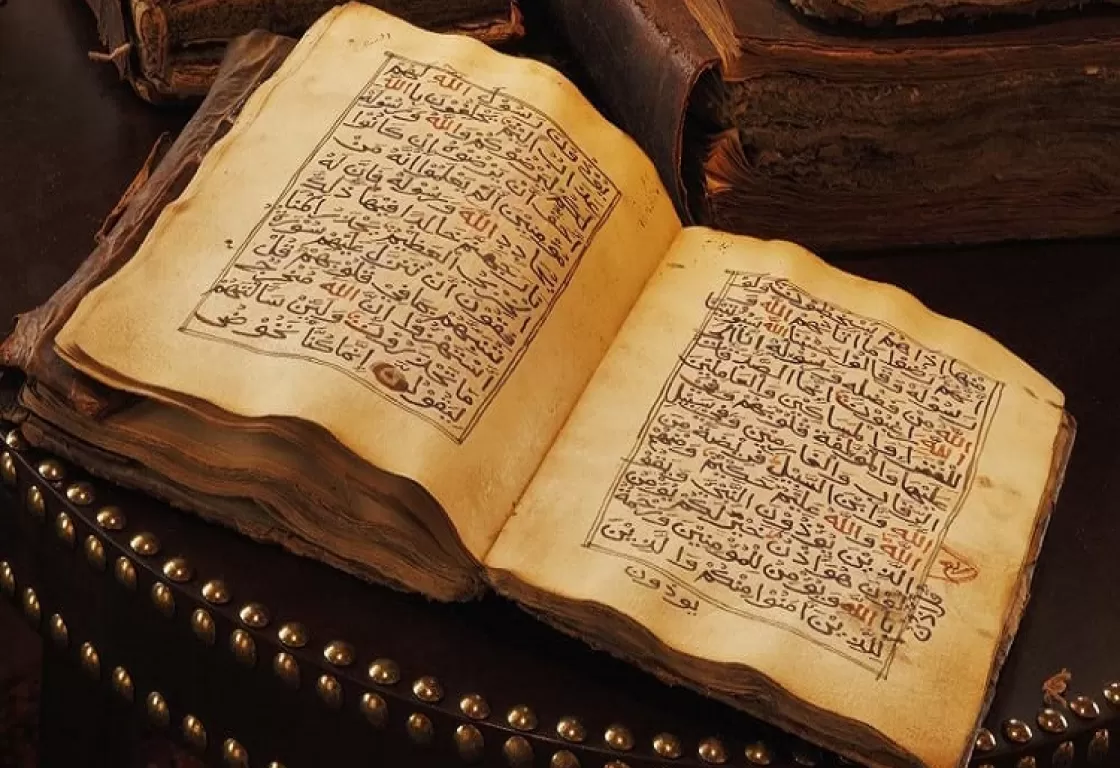 منها اذا هم يسخطون ولو
انهم رضوا ما اتاهم الله
ورسوله وقالوا حسبنا الله
الله من فضله ورسوله انا الى
الله انما الصدقات
للفقرا والمساكين والعاملين
عليها والمولفة قلوبهم وفي
الرقاب والغارمين وفي سبيل
الله وابن السبيل فريضة من
الله والله عليم حكيم ومنهم
الذين يوذون النبي ويقولون
هو اذن قل اذن خير لكم يومن
بالله ويومن للمومنين ورحمة
للذين ءامنوا منكم والذين
يوذون
رسول الله لهم
اليم يحلفون بالله
لكم ليرضوكم والله ورسوله
احق ان يرضوه ان كانوا
مومنين الم يعلموا انه من
يحادد الله ورسوله فان له
خالدا فيها ذلك
العظيم يحذر المنا
فقون ان تنزل عليهم سورة
تنبيهم بما في قلوبهم قل
استهزءوا ان الله مخرج
ما تحذرون ولئن سالتهم
ليقولن انما كنا نخوض